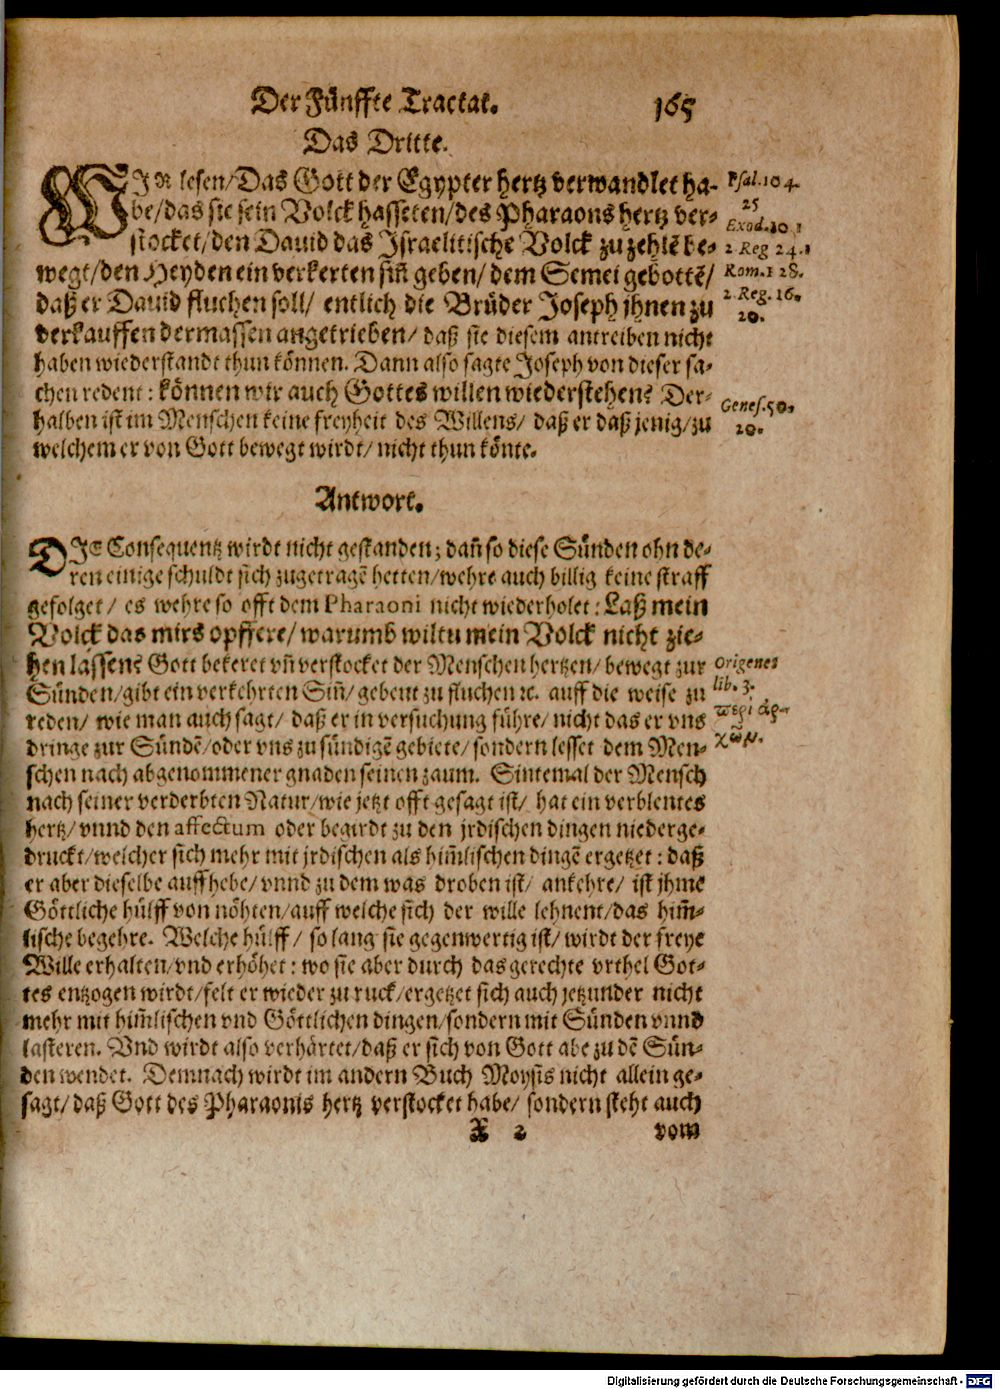 Der Fünffte Tractat. 165
Das Dritte.
WIR lesen/Das Gott der Egypter hertz verwandlet ha-
be/das sie sein Volck hasseten/des Pharaons hertz ver-
stocket/den Dauid das Jsraelitische Volck zu zehlē be-
wegt/den Heyden ein verkerten siñ geben/dem Semei gebottē/
daß er Dauid fluchen soll/ entlich die Brüder Joseph jhnen zu
verkauffen dermassen angetrieben/ daß sie diesem antreiben nicht
haben wiederstandt thun können. Dann also sagte Joseph von dieser sa-
chen redent: können wir auch Gottes willen wiederstehen? Der-
halben ist im Menschen keine freyheit des Willens/ daß er daß jenig/zu
welchem er von Gott bewegt wirdt/ nicht thun könte.
Psal.104.
25
Exod.10 1
2 Reg 24.1
Rom.1 28.
2. Reg. 16.
10.
Genes.50.
19.
Antwort.
DIE Consequentz wirdt nicht gestanden; dañ so diese Sünden ohn de-
ren einige schuldt sich zugetragē hetten/wehre auch billig keine straff
gefolget/ es wehre so offt dem Pharaoni nicht wiederholet: Laß mein
Volck das mirs opffere/warumb wiltu mein Volck nicht zie-
hen lassen? Gott bekeret vñ verstocket der Menschen hertzen/ bewegt zur
Sünden/gibt ein verkehrten Siñ/gebeut zu fluchen ꝛc. auff die weise zu
reden/ wie man auch sagt/ daß er in versuchung führe/ nicht das er vns
dringe zur Sündē/oder vns zu sündigē gebiete/sondern lesset dem Men-
schen nach abgenommener gnaden seinen zaum. Sintemal der Mensch
nach seiner verderbten Natur/wie jetzt offt gesagt ist/ hat ein verblentes
hertz/vnnd den affectum oder begirdt zu den jrdischen dingen niederge-
druckt/welcher sich mehr mit jrdischen als him̃lischen dingē ergetzet: daß
er aber dieselbe auffhebe/vnnd zu dem was droben ist/ ankehre/ ist jhme
Göttliche hülff von nöhten/auff welche sich der wille lehnent/das him̃-
lische begehre. Welche hülff/ so lang sie gegenwertig ist/wirdt der freye
Wille erhalten/vnd erhöhet: wo sie aber durch das gerechte vrthel Got-
tes entzogen wirdt/felt er wieder zu ruck/ergetzet sich auch jetzunder nicht
mehr mit him̃lischen vnd Göttlichen dingen/sondern mit Sünden vnnd
lasteren. Vnd wirdt also verhärtet/daß er sich von Gott abe zu dē Sün-
den wendet. Demnach wirdt im andern Buch Moysis nicht allein ge-
sagt/daß Gott des Pharaonis hertz verstocket habe/ sondern steht auch
Origenes
lib. 3.
περὶ ἀρ-
χῶν.
X 2 vom
Digitalisierung gefördert durch die Deutsche Forschungsgemeinschaft - DFG